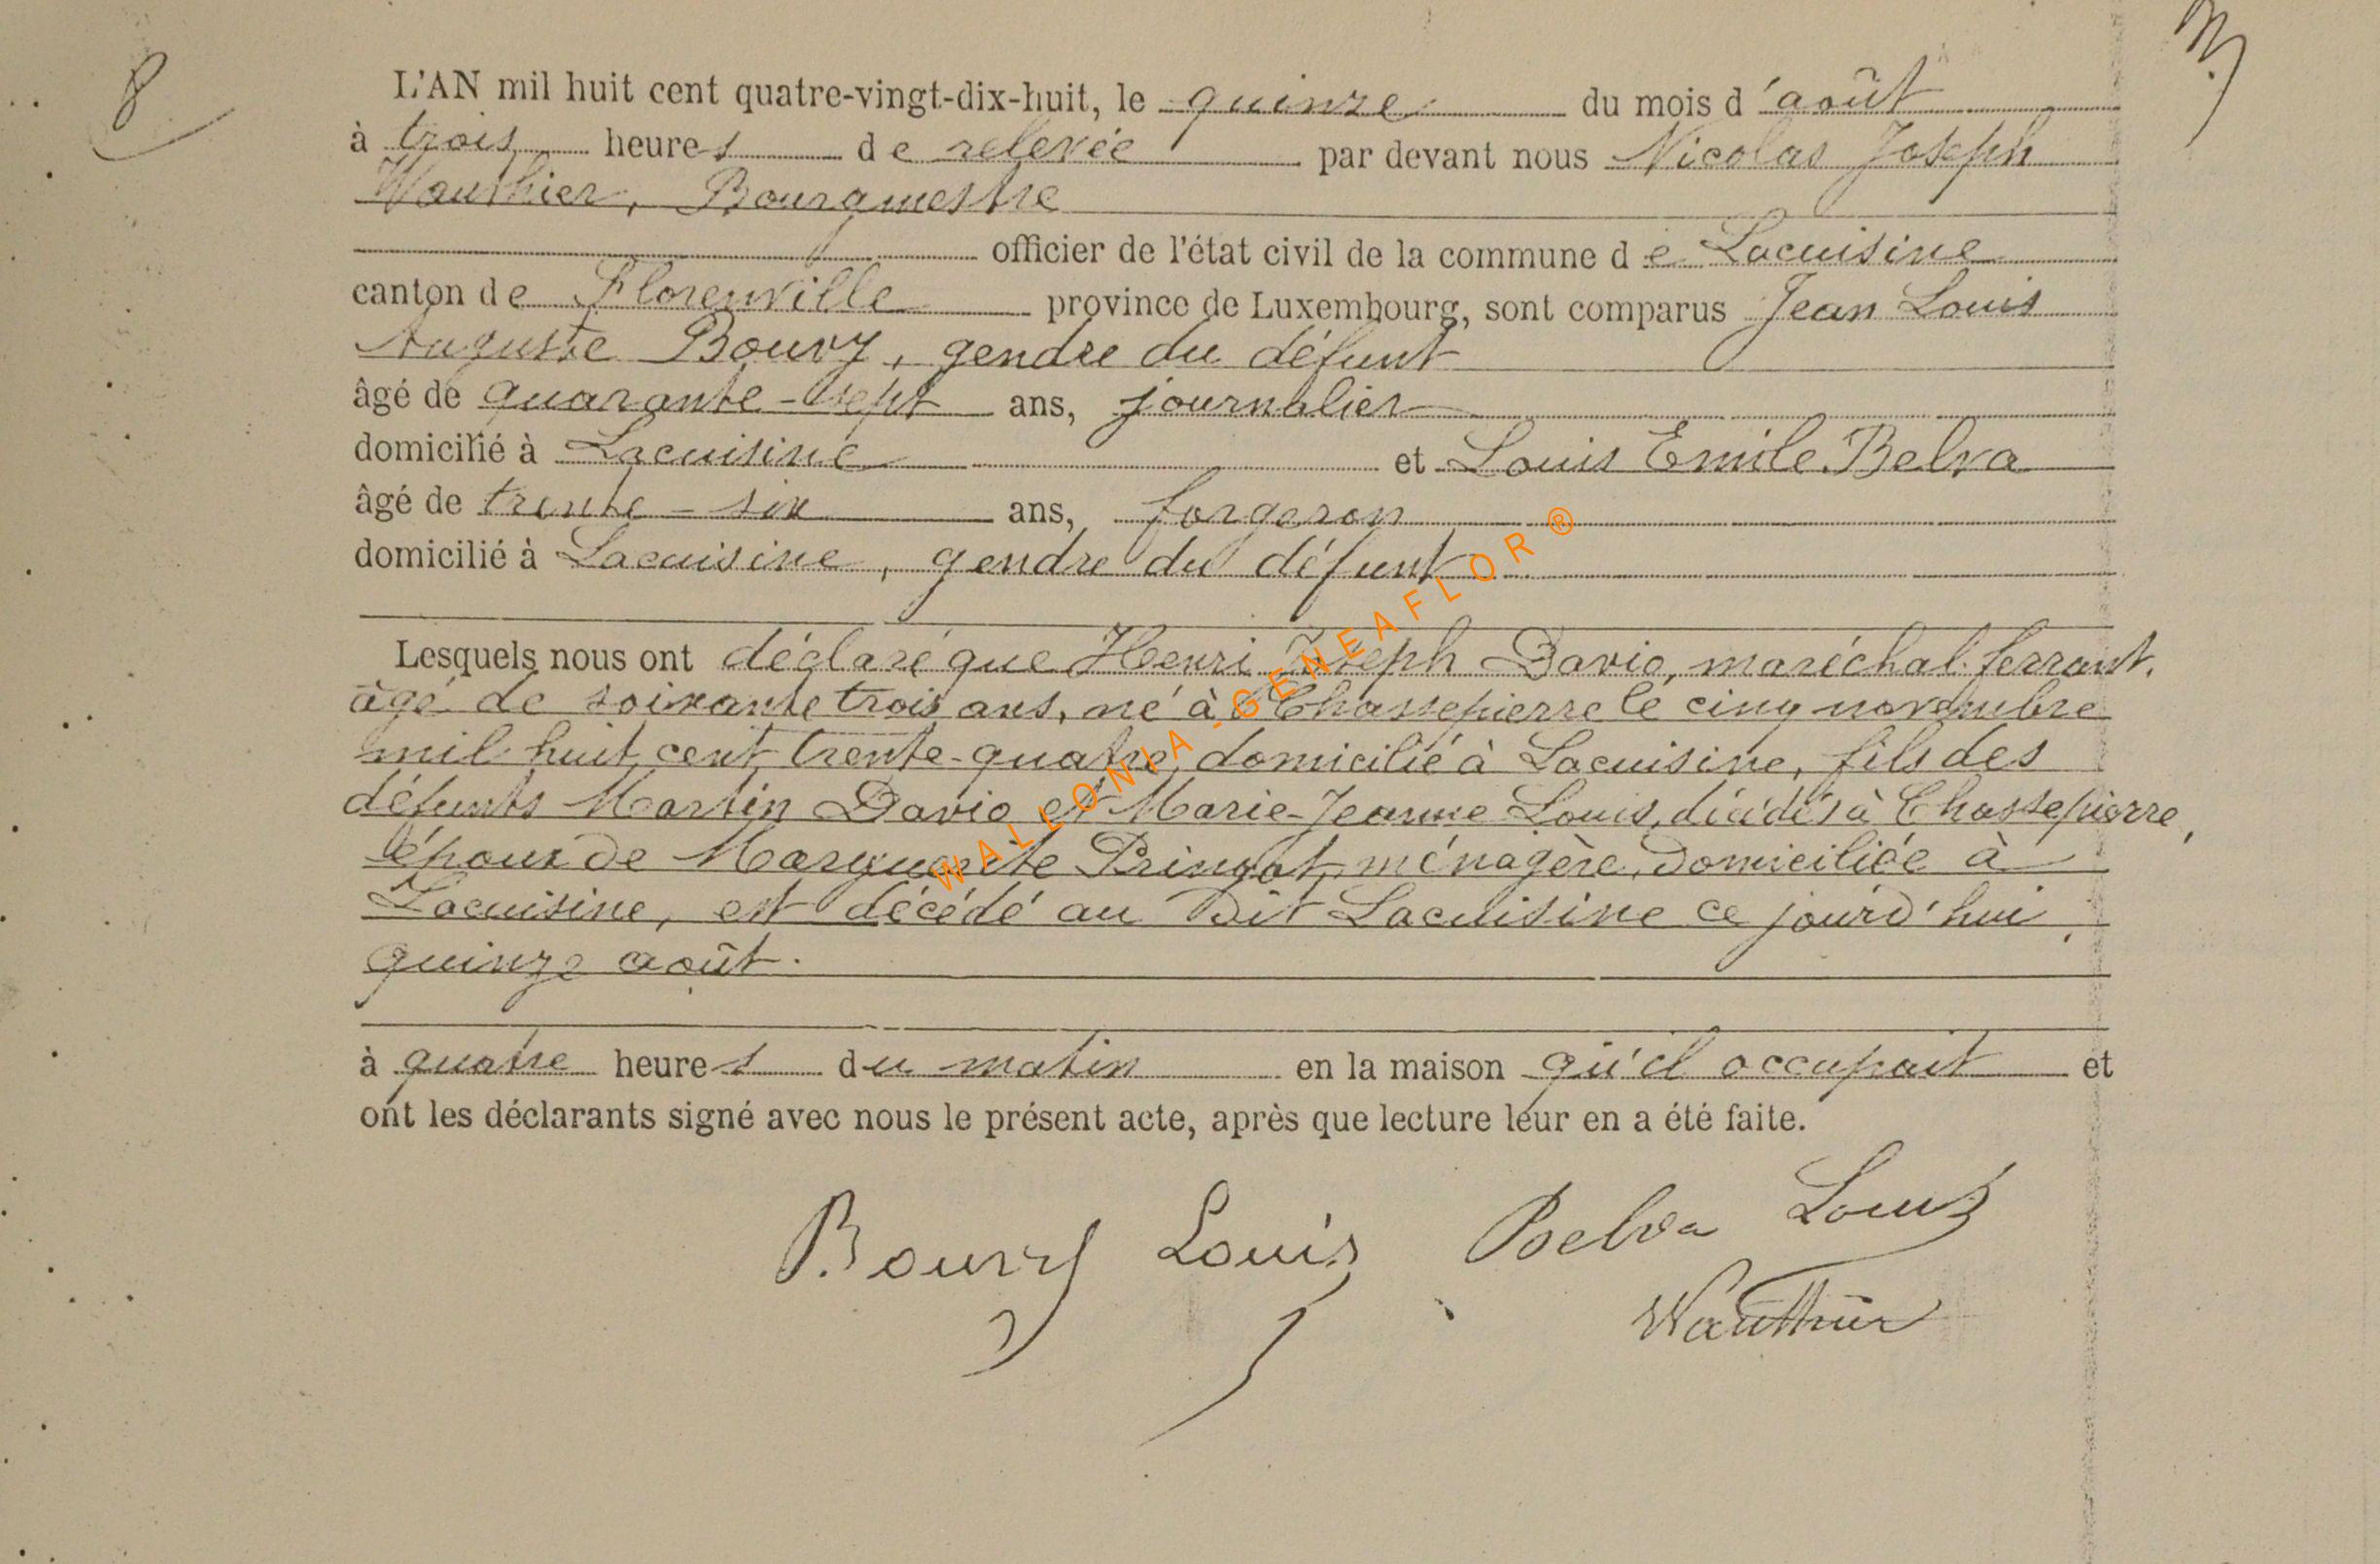 8
L'AN mil huit cent quatre-vingt-dix-huit, le quinze du mois d'août
à trois heures de relevée par devant nous Nicolas Joseph
Wauthier, Bourgmestre
officier de l'état civil de la commune de Lacuisine
canton de Florenville province de Luxembourg, sont comparus Jean Louis
Auguste Bouvy, gendre du défunt
âgé de quarante-sept ans, journalier
domicilié à Lacuisine et Louis Emile Belva
âgé de trente-six ans, forgeron
domicilié à Lacuisine, gendre du défunt
Lesquels nous ont déclaré que Henri Joseph Davio, maréchal-ferrant,
âgé de soixante trois ans, né à Chassepierre le cinq novembre
mil huit cent trente-quatre, domicilié à Lacuisine, fils des
défunts Martin Davio et Marie-Jeanne Louis, décédés à Chassepierre,
époux de Marguerite Pringot, ménagère, domiciliée à
Lacuisine, est décédé au dit Lacuisine ce jourd'hui
quinze août.
à quatre heures du matin en la maison qu'il occupait et
ont les déclarants signé avec nous le présent acte, après que lecture leur en a été faite.
Bouvy Louis Belva Louis
Wauthier
WALLONIA-GENEAFLOR®